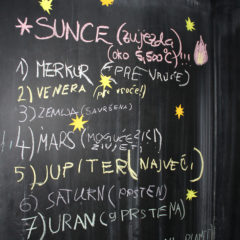 * SUNCE (zvijezda)
(oko 5,500°C)!!!
1) MERKUR (PREVRUĆE)
2) VENERA (prevruće!)
3) ZEMLJA (SAVRŠENA)
4) MARS (MOGUĆE ŽIVJETI)
5) JUPITER (NAJVEĆI)
6) SATURN (PRSTEN)
7) URAN (9 PRSTENA)